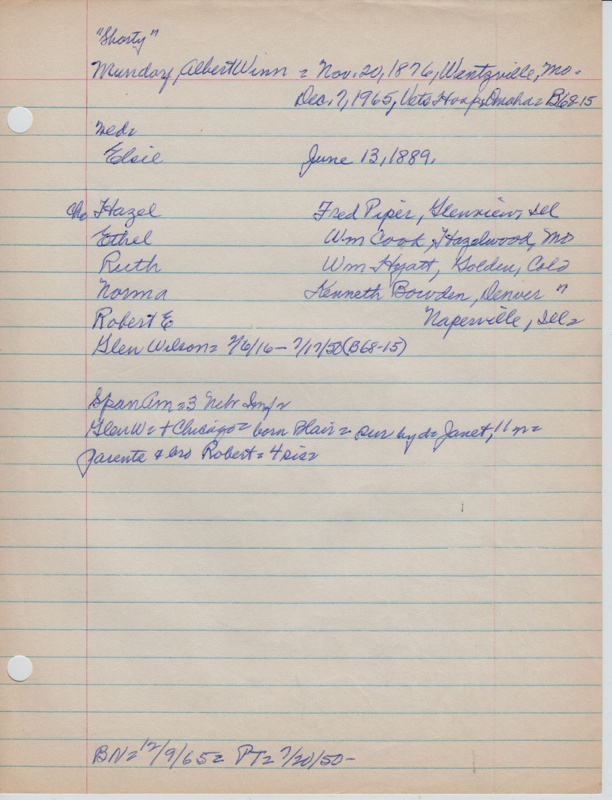 "Shorty"
Munday, Albert Winn = Nov. 20, 1876, Wentzville, Mo.
Dec. 7, 1965, Vets Hosp, Omaha = B68-15
Wed=
Elsie June 13, 1889.
Ch= Hazel Fred Piper, Glenview, Ill
Ethel Wm Cook, Hazelwood, Mo
Ruth Wm Hyatt, Golden, Colo
Norma Kenneth Bowden, Denver "
Robert E Naperville, Ill=
Glen Wilson= /6/16 - 7/17/50 (B68-15)
Span Am = 3 Nebr Inf=
Glen W= + Chicago= born Blair = sur by d= Janet, 11 m=
parents & bro Robert= 4 sis=
BN= 12/9/65= PT= 7/20/50-